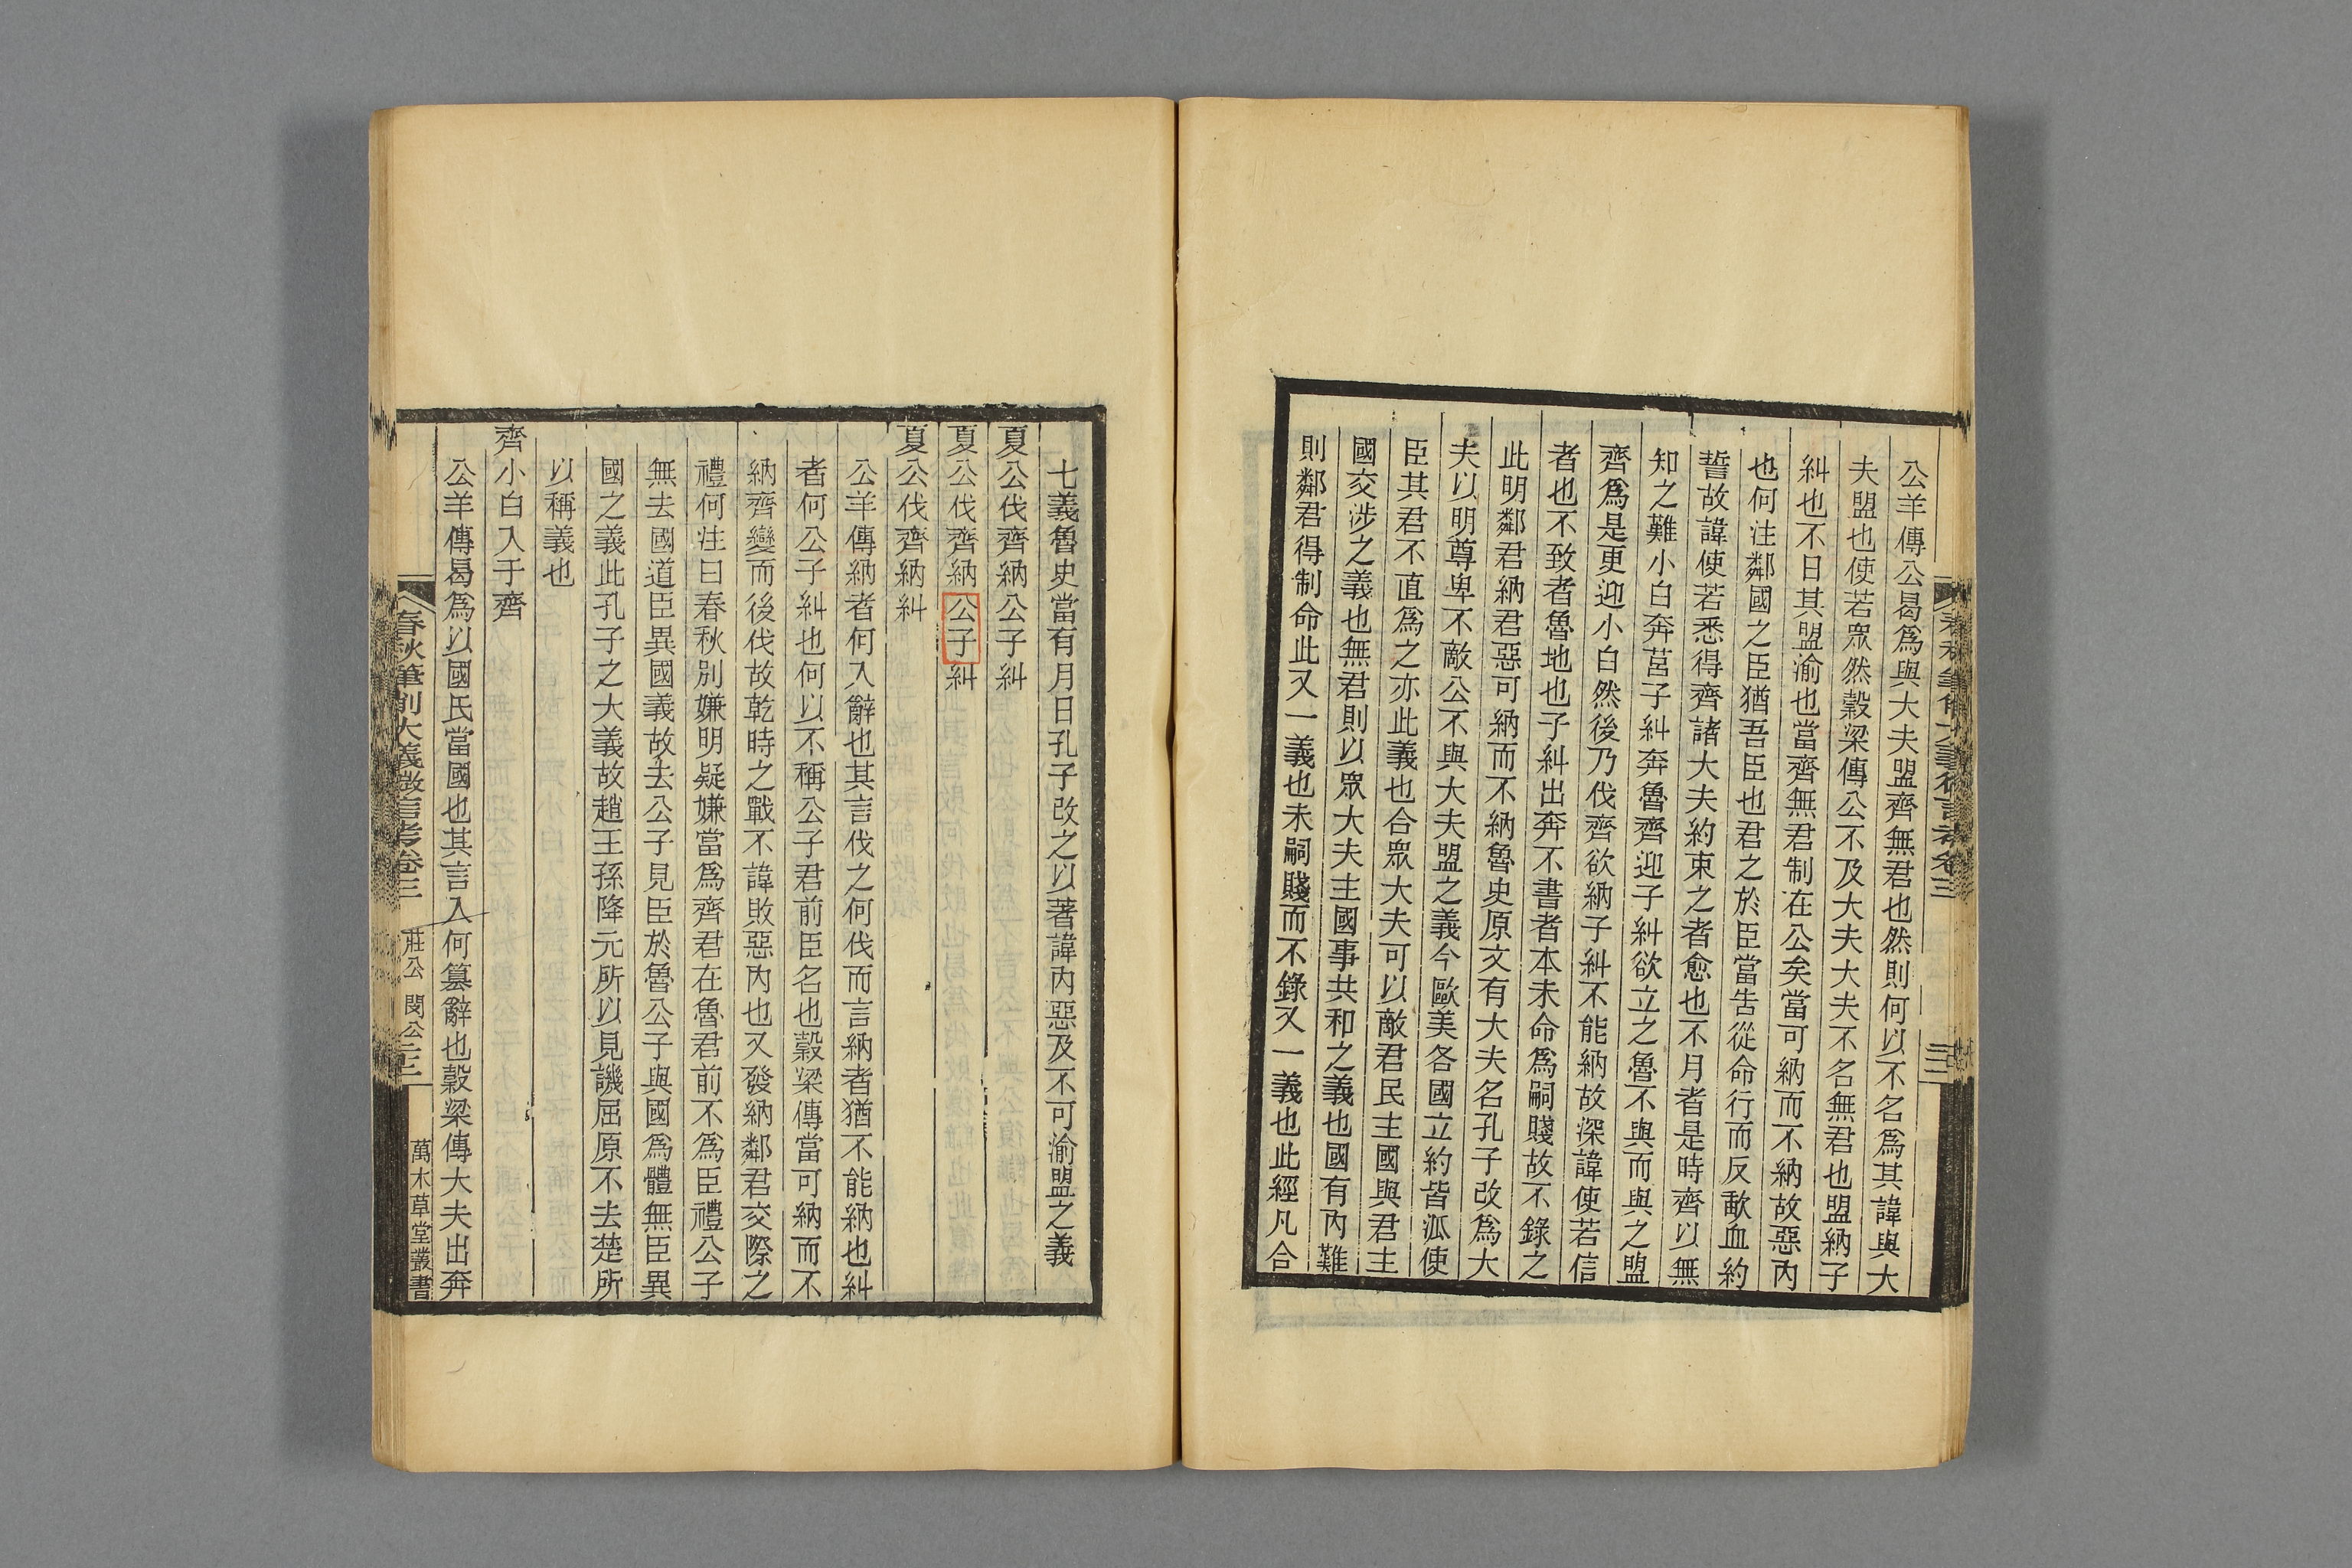 公羊傳公曷爲與大夫盟齊無君也然則何以不名爲其諱與大
夫盟也使若眾然穀梁傳公不及大夫大夫不名無君也盟納子
糾也不日其盟渝也當齊無君制在公矣當可納而不納故惡內
也何注鄰國之臣猶吾臣也君之於臣當告從命行而反歃血約
誓故諱使若悉得齊諸大夫約束之者愈也不月者是時齊以無
知之難小白奔莒子糾奔魯齊迎子糾欲立之魯不與而與之盟
齊爲是更迎小白然後乃伐齊欲納子糾不能納故深諱使若信
者也不致者魯地也子糾出奔不書者本未命爲嗣賤故不錄之
此明鄰君納君惡可納而不納魯史原文有大夫名孔子改爲大
夫以明尊卑不敵公不與大夫盟之義今歐美各國立約皆派使
臣其君不直爲之亦此義也合眾大夫可以敵君民主國與君主
國交涉之義也無君則以眾大夫主國事共和之義也國有內難
則鄰君得制命此又一義也未嗣賤而不錄又一義也此經凡合
七義魯史當有月日孔子改之以著諱內惡及不可渝盟之義
夏公伐齊納公子糾
夏公伐齊納公子糾
夏公伐齊納糾
公羊傳納者何入辭也其言伐之何伐而言納者猶不能納也糾
者何公子糾也何以不稱公子君前臣名也穀梁傳當可納而不
納齊變而後伐故乾時之戰不諱敗惡內也又發納鄰君交際之
禮何注曰春秋別嫌明疑嫌當爲齊君在魯君前不爲臣禮公子
無去國道臣異國義故去公子見臣於魯公子與國爲體無臣異
國之義此孔子之大義故趙王孫降元所以見譏屈原不去楚所
以稱義也
齊小白入于齊
公羊傳曷爲以國氏當國也其言入何篡辭也穀梁傳大夫出奔
春秋筆削大義微言考卷三 莊公 閔公 萬木草堂叢書